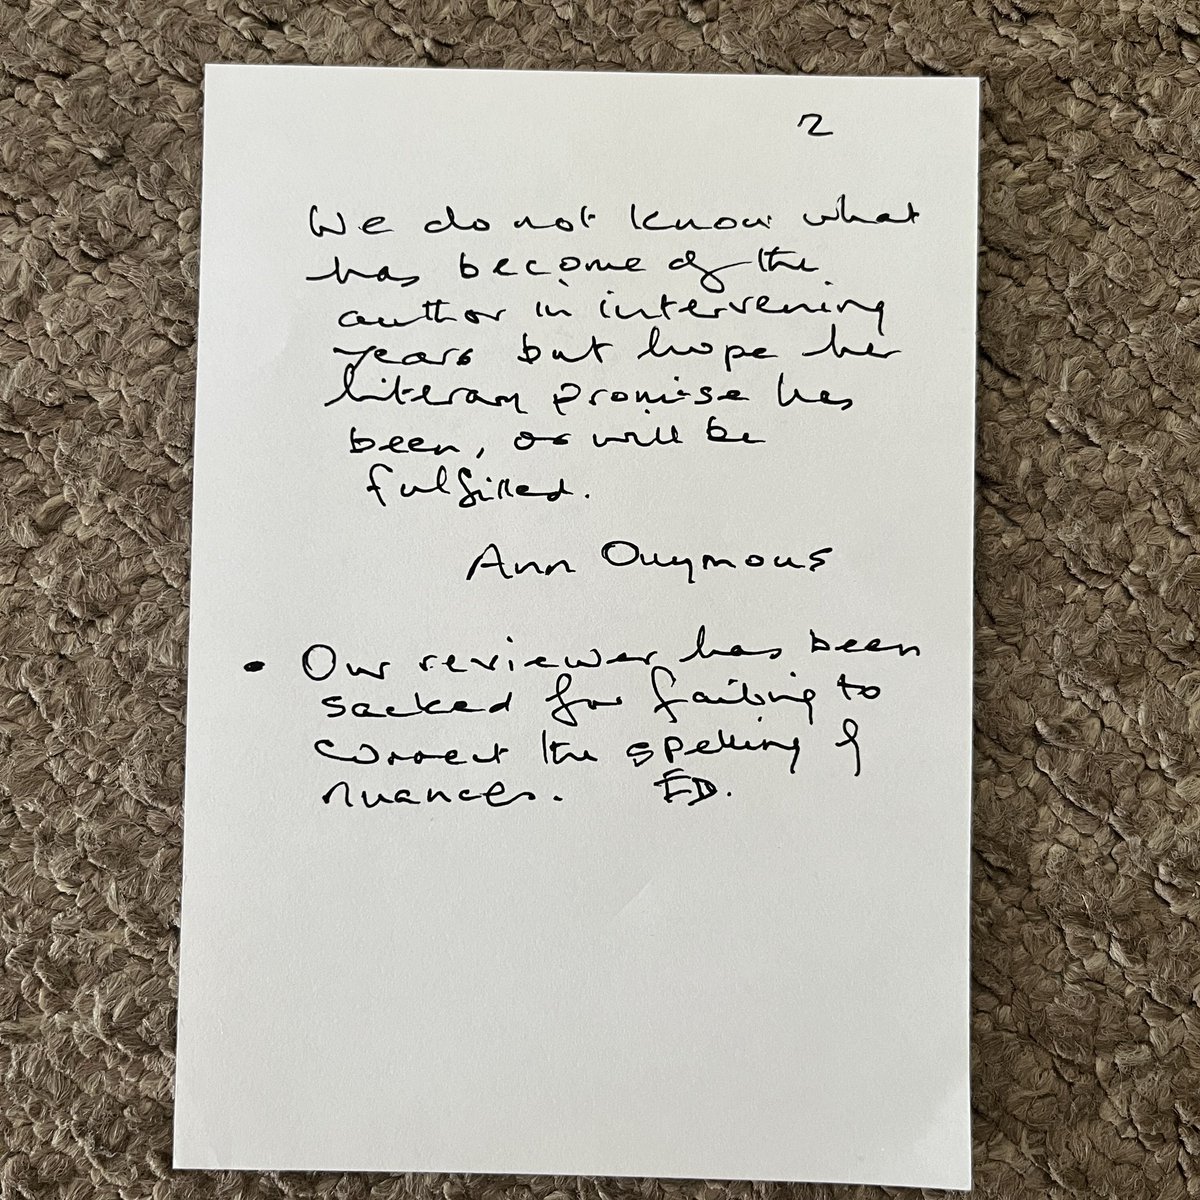 2
We do not know what
has become of the
author in intervening
years but hope her
literary promise has
been, or will be
fulfilled.
Ann Onymous
• Our reviewer has been
sacked for failing to
correct the spelling of
nuances. ED.